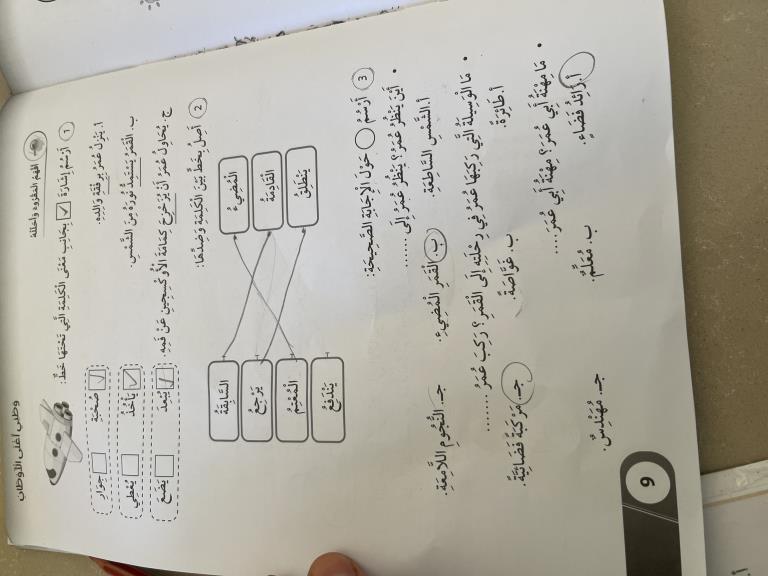 وطني أغلى الأوطان
أفهم المقروء وأحلله
١ أَرْسُمُ إِشَارَةَ ✓ بِجَانِبِ مَعْنَى الْكَلِمَةِ الَّتِي تَحْتَهَا خَطٌّ:
أ. يَنْزِلُ عُمَرُ بِرِفْقَةِ وَالِدِهِ. صُحْبَةِ جِوَارِ
ب. الْقَمَرُ يَسْتَمِدُّ نُورَهُ مِنَ الشَّمْسِ. يَأْخُذُ يُعْطِي
ج. يُحَاوِلُ عُمَرُ أَنْ يُزَحْزِحَ كِمَامَةَ الْأُوكْسِجِينِ عَنْ فَمِهِ. يُبْعِدَ يَضَعَ
٢ أَصِلُ بِخَطٍّ بَيْنَ الْكَلِمَةِ وَضِدِّهَا:
الْمُضِيءُ السَّابِقَةُ
الْقَادِمَةُ يَرْجِعُ
يَنْطَلِقُ الْمُعْتِمُ
يَنْدَفِعُ
٣ أَرْسُمُ ○ حَوْلَ الْإِجَابَةِ الصَّحِيحَةِ:
• أَيْنَ يَنْظُرُ عُمَرُ؟ يَنْظُرُ عُمَرُ إِلَى ......
أ. الشَّمْسِ السَّاطِعَةِ. ب. الْقَمَرِ الْمُضِيءِ. جـ. النُّجُومِ اللَّامِعَةِ.
• مَا الْوَسِيلَةُ الَّتِي رَكِبَهَا عُمَرُ فِي رِحْلَتِهِ إِلَى الْقَمَرِ؟ رَكِبَ عُمَرُ .......
أ. طَائِرَةً. ب. غَوَّاصَةً. جـ. مَرْكَبَةً فَضَائِيَّةً.
• مَا مِهْنَةُ أَبِي عُمَرَ؟ مِهْنَةُ أَبِي عُمَرَ ....
أ. رَائِدُ فَضَاءٍ. ب. مُعَلِّمٌ. جـ. مُهَنْدِسٌ.
9